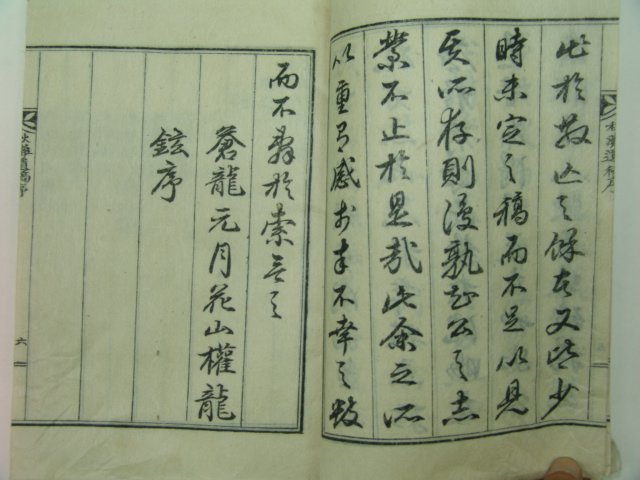 此於散亡之餘者又些少
時未定之稿而不足以見
其所存則漫孰知公之志
業不止於是哉此余之所
以重有感於幸不幸之數
而不辭於索言之
蒼龍元月花山權龍
鉉序
六